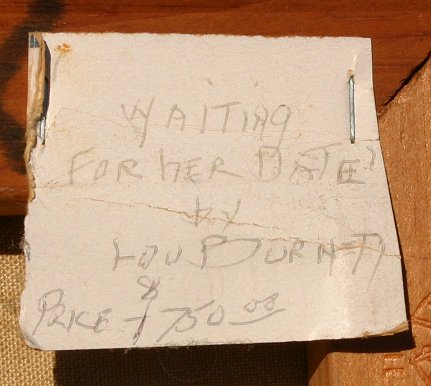 WAITING
FOR HER DATE"
by
LOU BURNETT
PRICE - $750.00